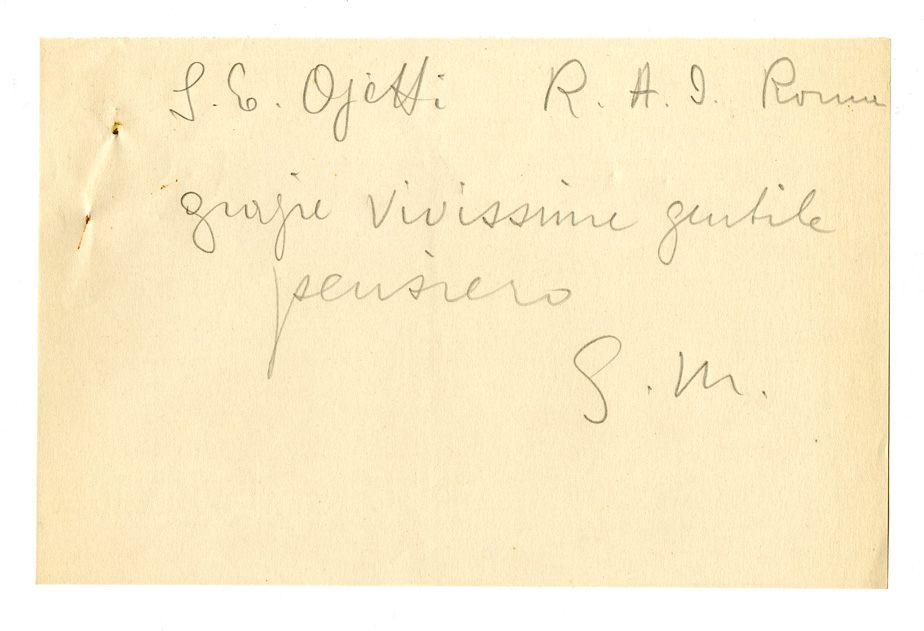 S. E. Ojetti R. A. I. Roma
grazie vivissime gentile
pensiero
G. M.